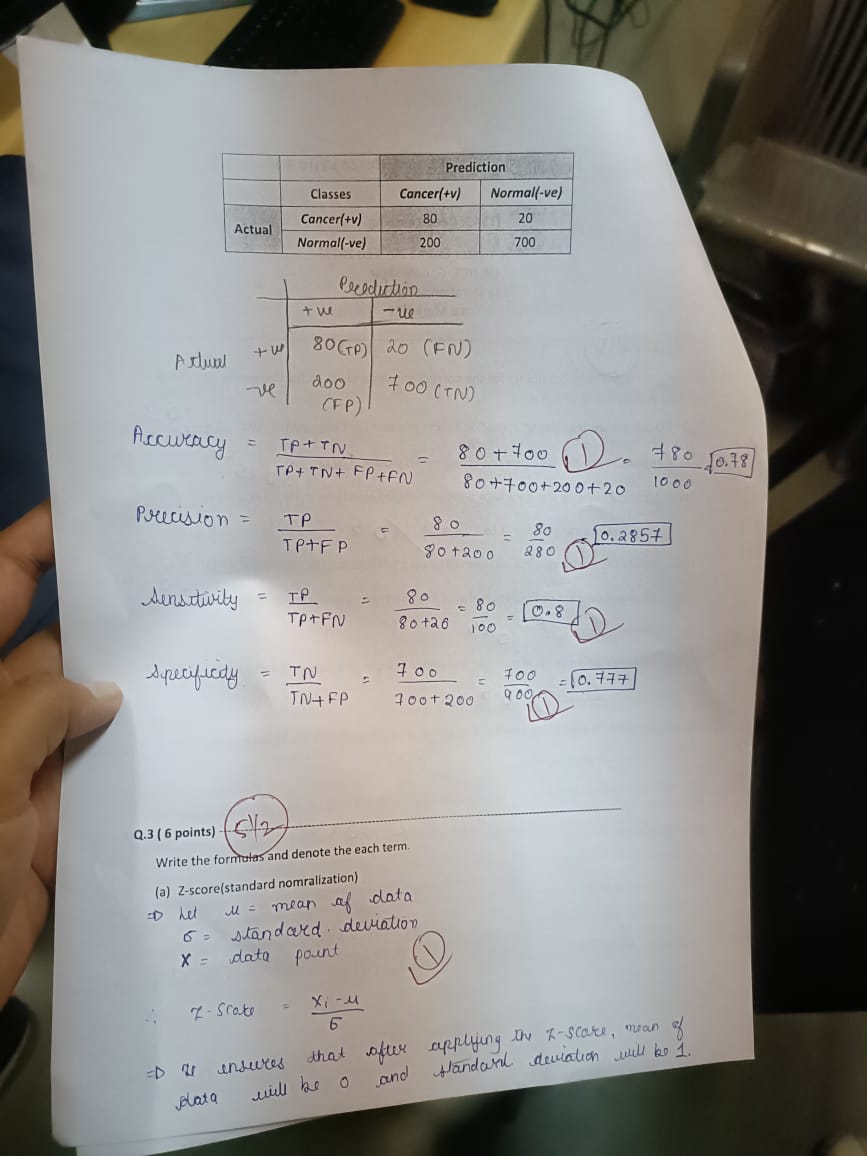 Prediction
Classes Cancer(+v) Normal(-ve)
Actual Cancer(+v) 80 20
Normal(-ve) 200 700
Prediction
+ve -ve
Actual +ve 80 (TP) 20 (FN)
-ve 200 (FP) 700 (TN)
Accuracy = TP+TN / TP+TN+FP+FN = 80+700 / 80+700+200+20 = 780 / 1000 = 0.78 1
Precision = TP / TP+FP = 80 / 80+200 = 80 / 280 = 0.2857 1
Sensitivity = TP / TP+FN = 80 / 80+20 = 80 / 100 = 0.8 1
Specificity = TN / TN+FP = 700 / 700+200 = 700 / 900 = 0.777 1
Q.3 ( 6 points) 5 1/2
Write the formulas and denote the each term.
(a) Z-score(standard nomralization)
⇒ Let μ = mean of data
σ = standard deviation
X = data point 1
∴ Z-Score = Xi-μ / σ
⇒ It ensures that after applying the Z-score, mean of
data will be 0 and standard deviation will be 1.